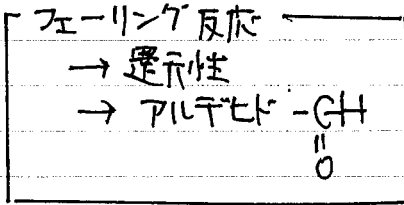 フェーリング反応
→ 還元性
→ アルデヒド -CH
||
O